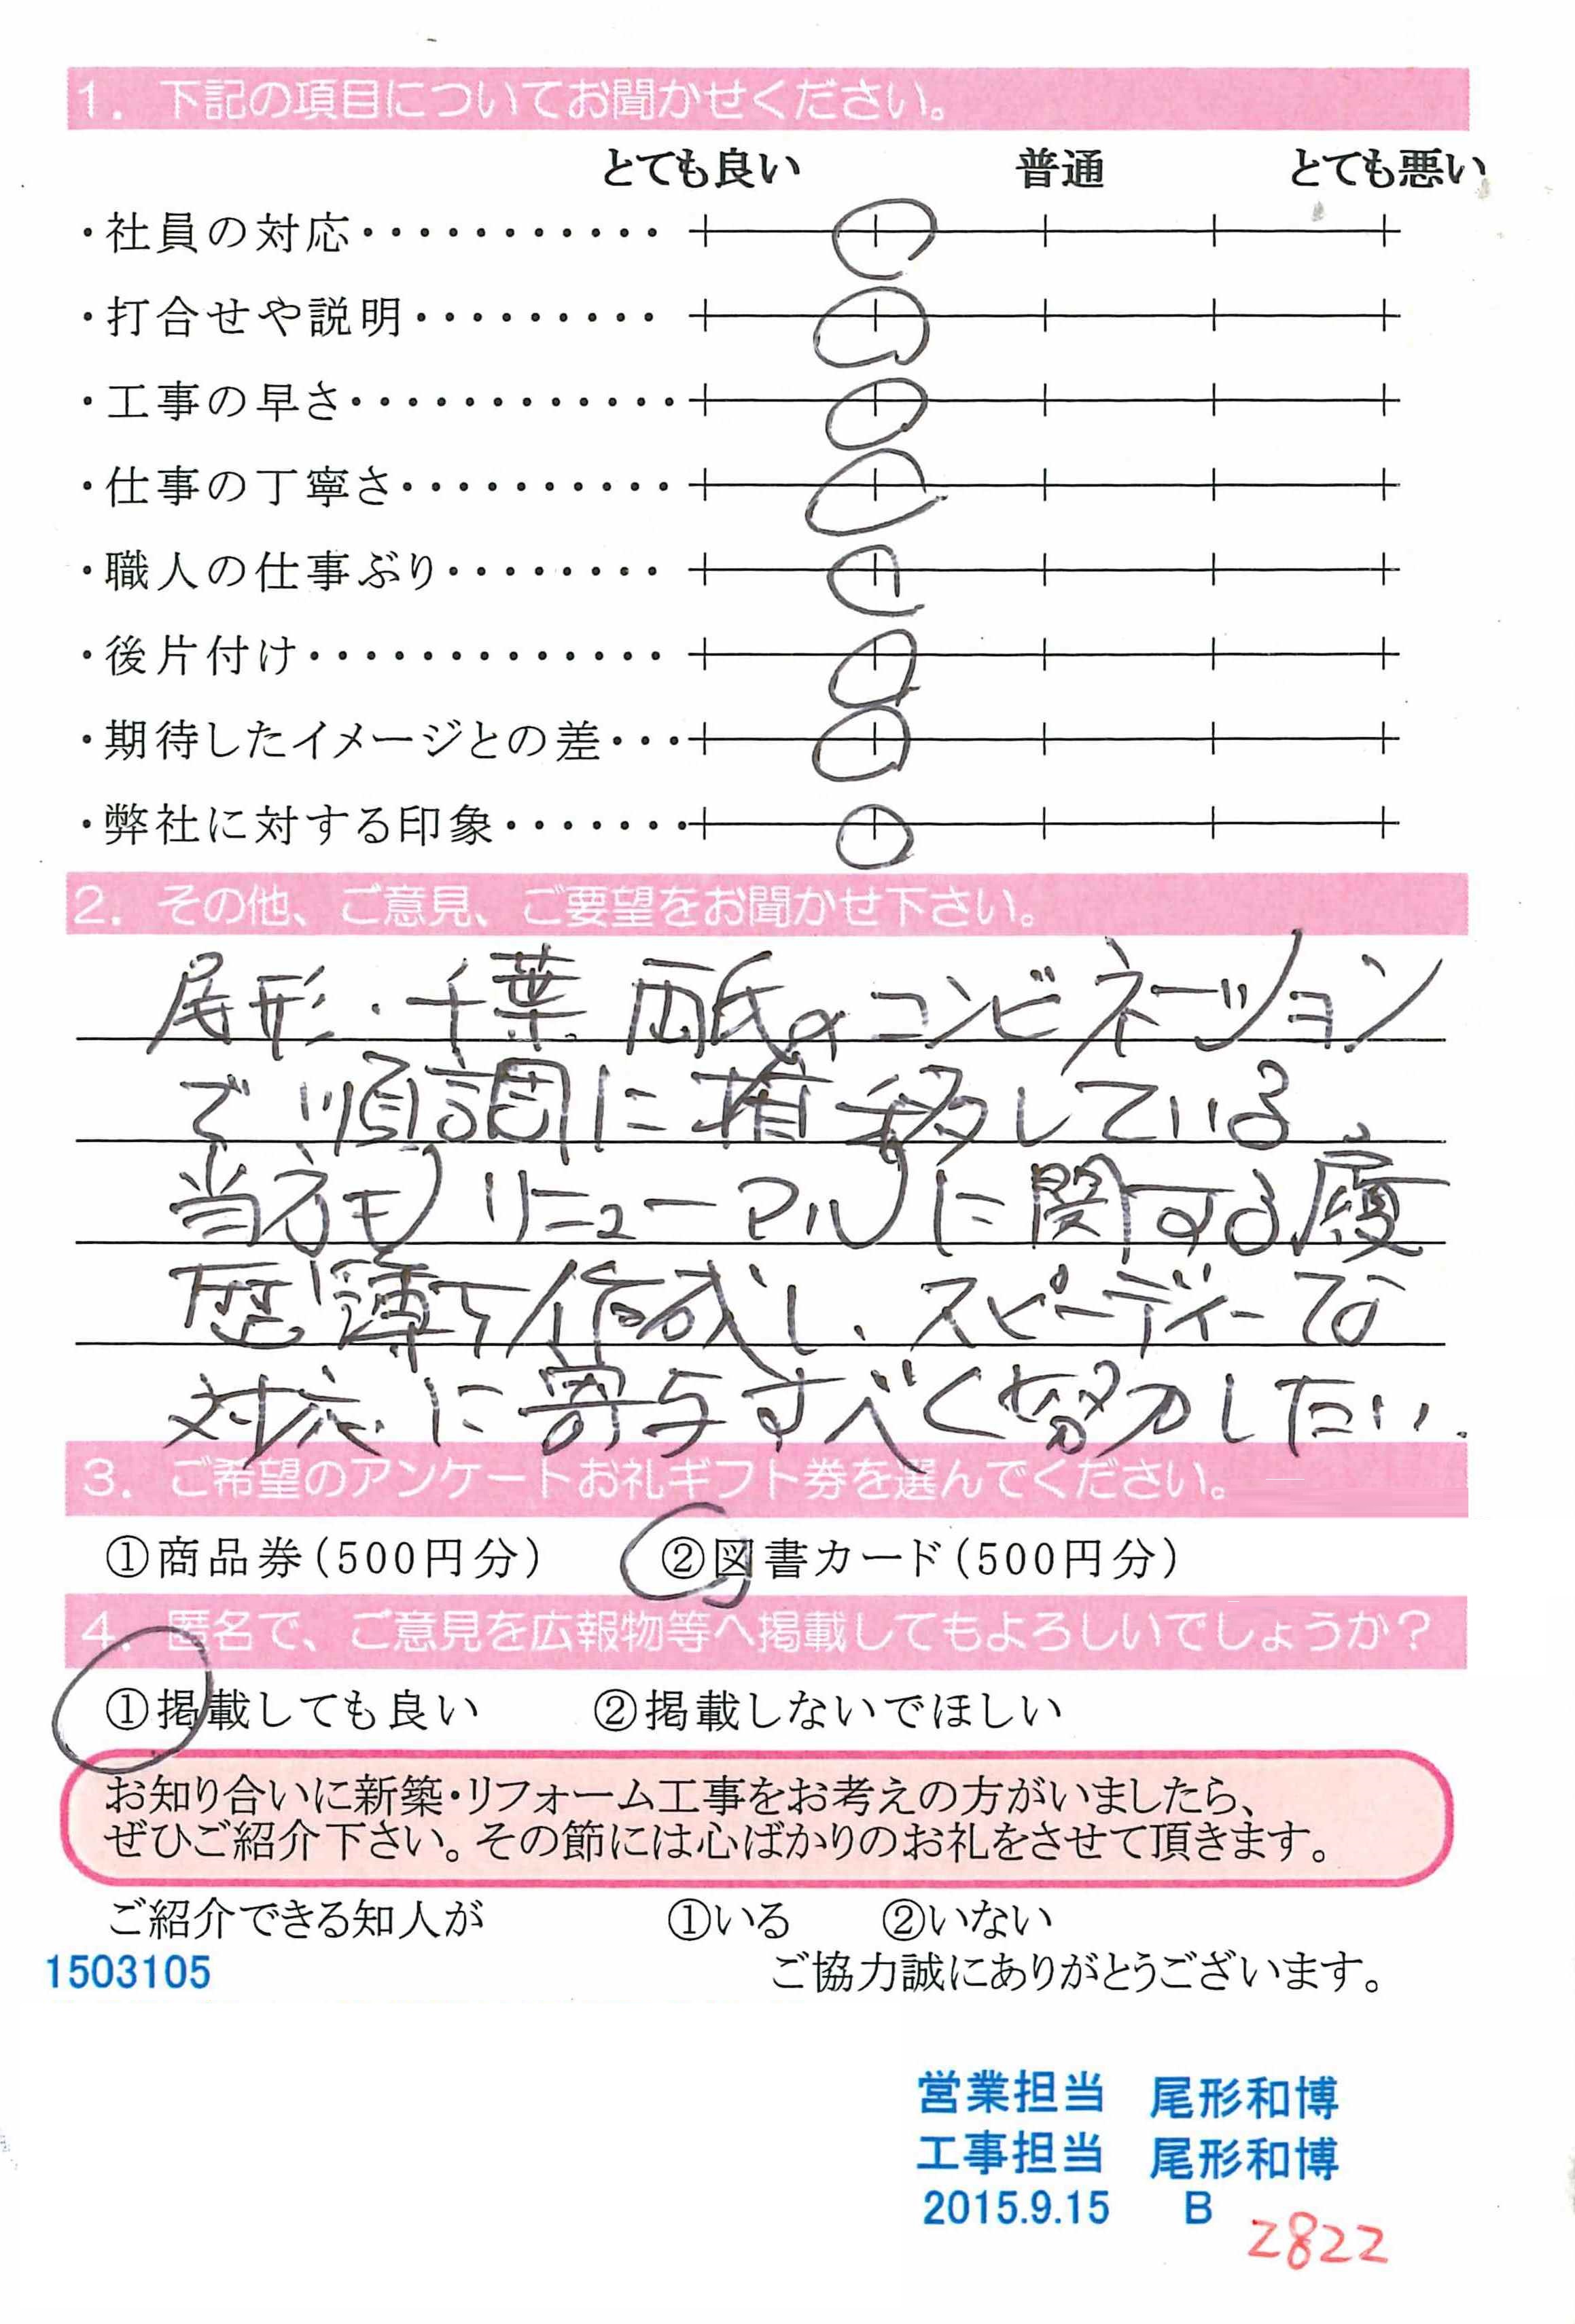 1. 下記の項目についてお聞かせください。
とても良い 普通 とても悪い
・社員の対応・・・・・・・・・・・
・打合せや説明・・・・・・・・・
・工事の早さ・・・・・・・・・・・・
・仕事の丁寧さ・・・・・・・・・・
・職人の仕事ぶり・・・・・・・・
・後片付け・・・・・・・・・・・・・
・期待したイメージとの差・・・
・弊社に対する印象・・・・・・・
2. その他、ご意見、ご要望をお聞かせ下さい。
尾形・千葉 両氏のコンビネーション
で順調に推移している。
当方もリニューアルに関する履
歴簿を作成し、スピーディーな
対応に寄与すべく努力したい。
3. ご希望のアンケートお礼ギフト券を選んでください。
①商品券(500円分) ②図書カード(500円分)
4. 匿名で、ご意見を広報物等へ掲載してもよろしいでしょうか?
①掲載しても良い ②掲載しないでほしい
お知り合いに新築・リフォーム工事をお考えの方がいましたら、
ぜひご紹介下さい。その節には心ばかりのお礼をさせて頂きます。
ご紹介できる知人が ①いる ②いない
1503105 ご協力誠にありがとうございます。
営業担当 尾形和博
工事担当 尾形和博
2015.9.15 B
2822